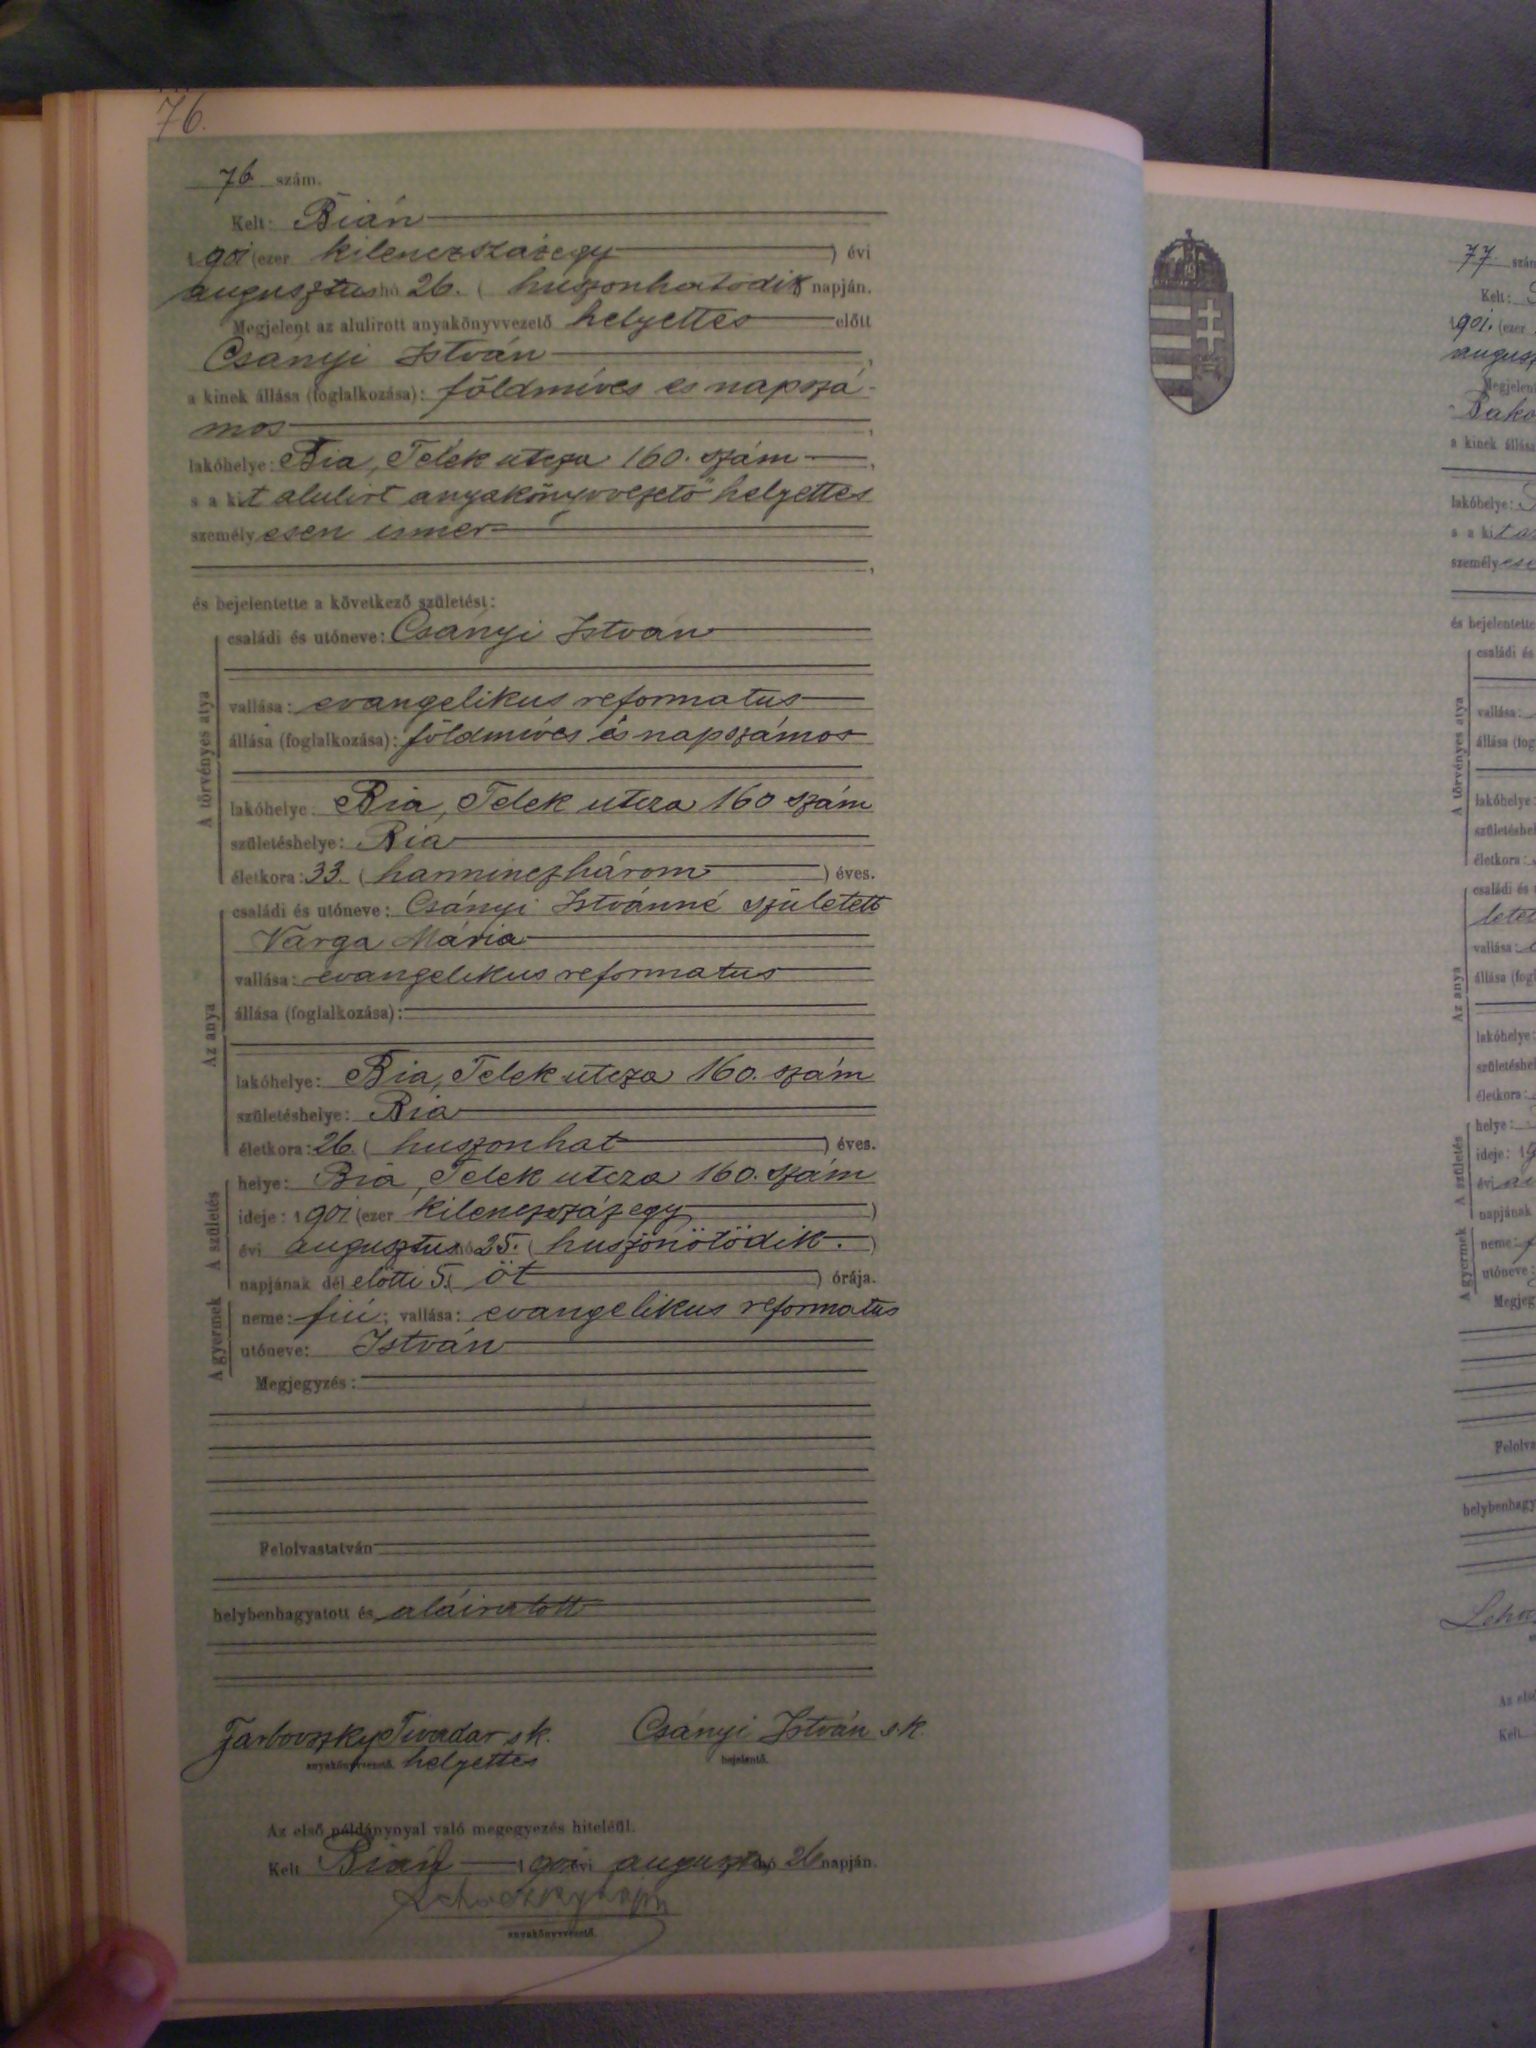 76.
76 szám.
Kelt: Bián
1901 (ezer kilenczszázegy ) évi
augusztus hó 26. ( huszonhatodik ) napján.
Megjelent az alulirott anyakönyvvezető helyettes előtt
Csányi István ,
a kinek állása (foglalkozása): földmíves és napszá-
mos ,
lakóhelye: Bia, Telek utcza 160. szám ,
s a kit alulirt anyakönyvvezető helyettes
személyesen ismer
,
és bejelentette a következő születést:
A törvényes atya
családi és utóneve: Csányi István
vallása: evangelikus reformatus
állása (foglalkozása): földmíves és napszámos
lakóhelye: Bia, Telek utcza 160 szám
születéshelye: Bia
életkora: 33. ( harminczhárom ) éves.
Az anya
családi és utóneve: Csányi Istvánné született
Varga Mária
vallása: evangelikus reformatus
állása (foglalkozása):
lakóhelye: Bia, Telek utcza 160. szám
születéshelye: Bia
életkora: 26. ( huszonhat ) éves.
A születés
helye: Bia, Telek utcza 160. szám
ideje: 1901 (ezer kilenczszázegy )
évi augusztus hó 25. ( huszonötödik. )
napjának dél előtti 5. ( öt ) órája.
A gyermek
neme: fiú; vallása: evangelikus reformatus
utóneve: István
Megjegyzés:
Felolvastatván
helybenhagyatott és aláiratott
Tivadar s k. Csányi István s. k.
anyakönyvvezető. helyettes bejelentő.
Az első példánynyal való megegyezés hiteléül.
Kelt Bián 1901 évi augusztus hó 26 napján.
anyakönyvvezető.
77. szám
Kelt:
1901. (ezer
augusz
Megjelent
Bako
a kinek állása
lakóhelye:
s a kit al
személyese
és bejelentette
A törvényes atya
családi és
vallása:
állása (fog
lakóhelye:
születéshel
életkora:
Az anya
családi és
letet
vallása:
állása (fogl
lakóhelye:
születéshel
életkora:
A születés
helye:
ideje: 19
évi au
napjának
A gyermek
neme: f
utóneve:
Megjeg
Felolva
helybenhagy
Az els
Kelt